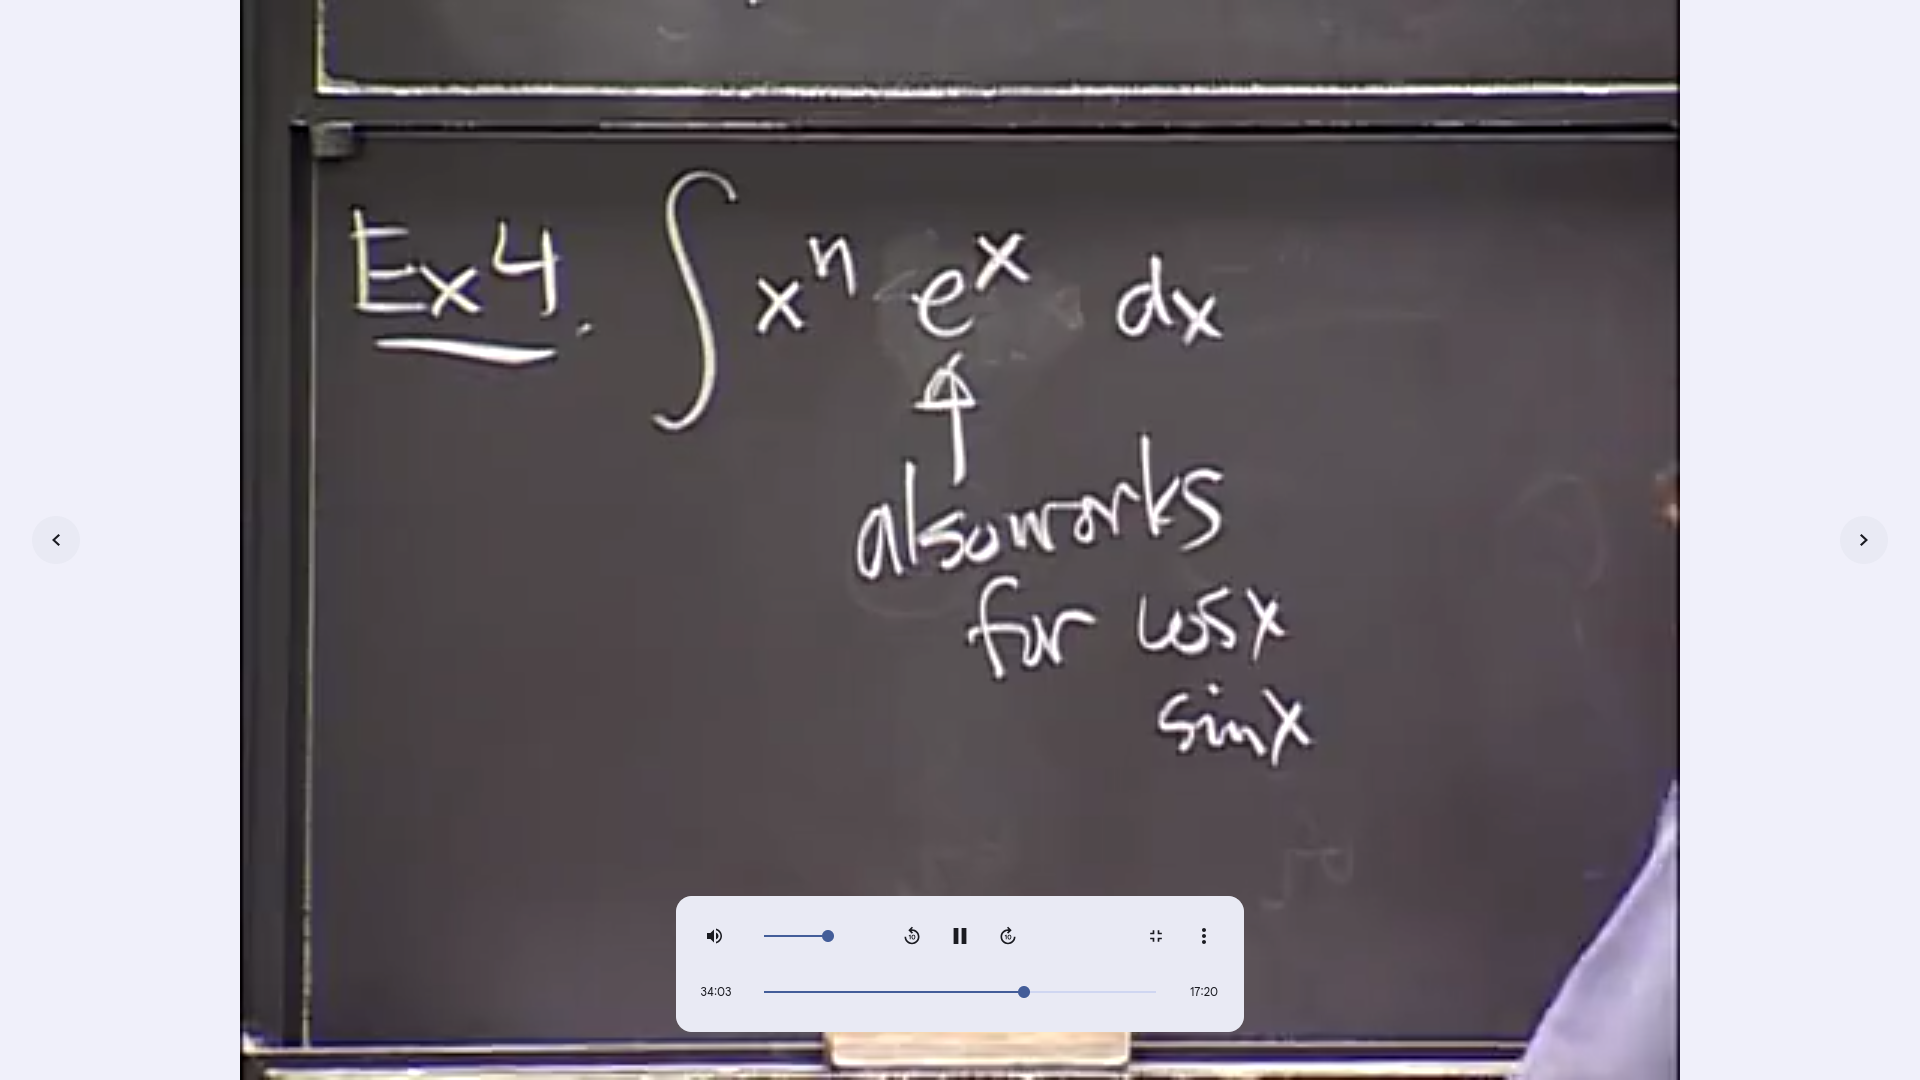 Ex 4. ∫ xⁿ eˣ dx
↑
also works
for cos x
sin x
34:03
17:20